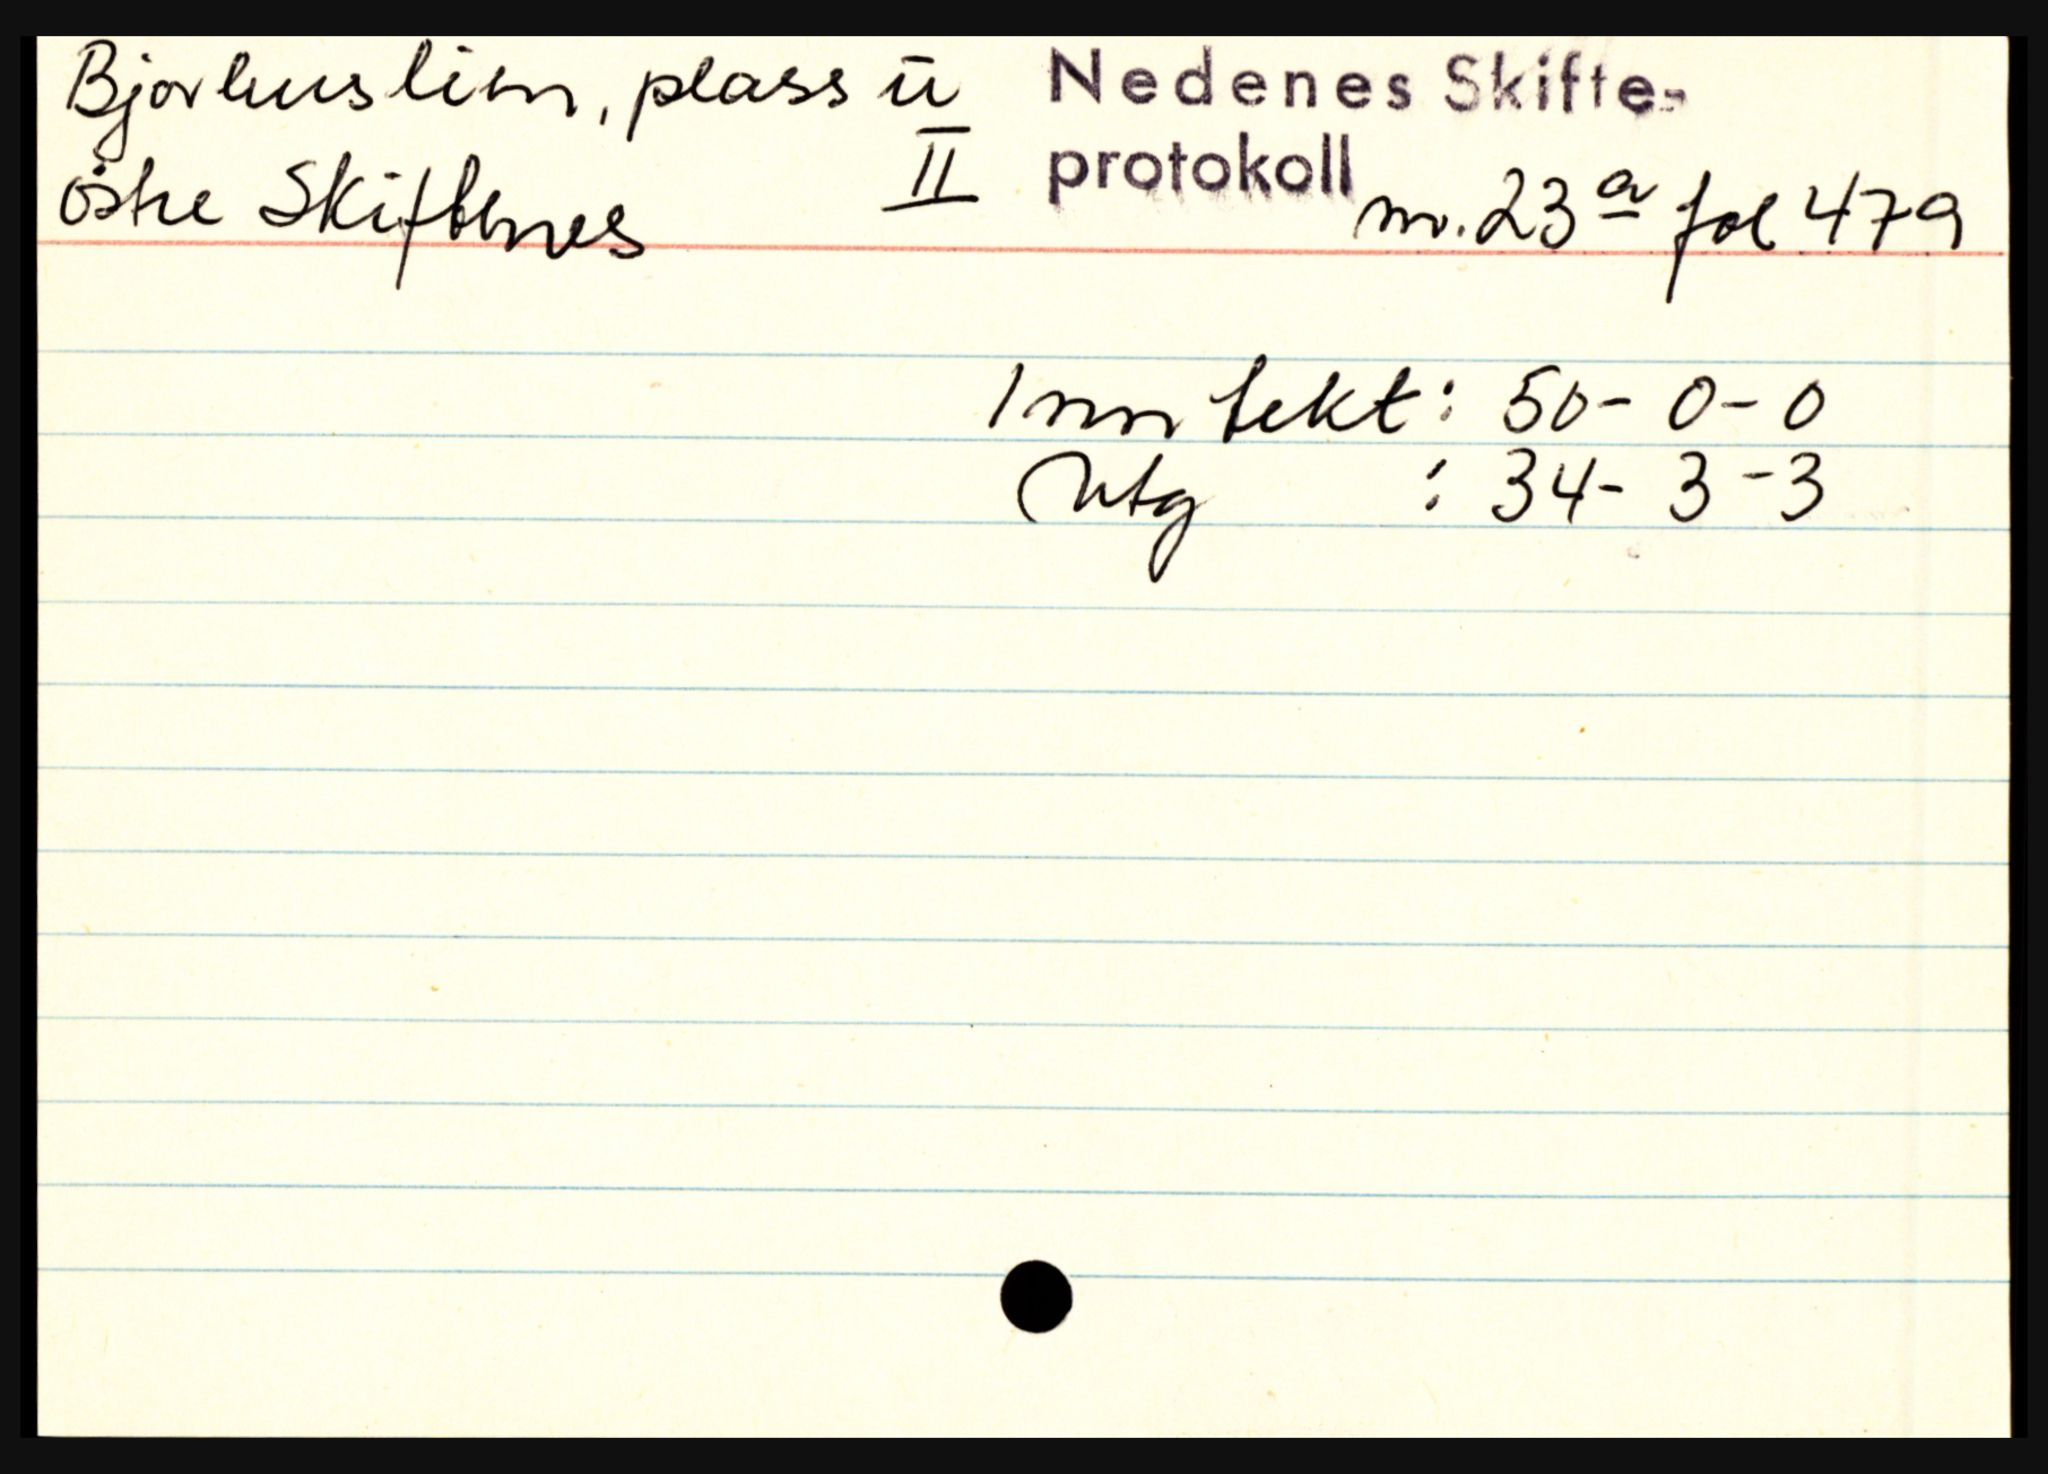 Bjorhuslien, plass u
östre Skiftenes
II
Nedenes Skifte-
protokoll
nr. 23 a fol 479
Inntekt: 50 - 0 - 0
Utg : 34 - 3 - 3